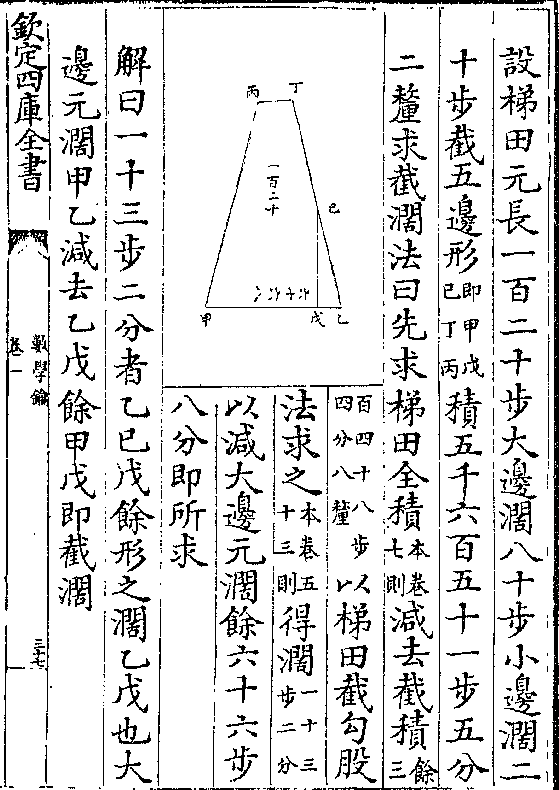 設梯田元長一百二十步大邊濶八十步小邊濶二
十步截五邊形即甲戊己丁丙積五千六百五十一步五分
二釐求截濶法曰先求梯田全積本卷七則減去截積餘三
百四十八步四分八釐以梯田截勾股
法求之本卷五十三則得濶一十三步二分
以減大邊元濶餘六十六步
八分即所求
丙 丁
一百二十
己
甲 戊 乙
解曰一十三步二分者乙己戊餘形之濶乙戊也大
邊元濶甲乙減去乙戊餘甲戊即截濶
欽定四庫全書
數學鑰
卷一